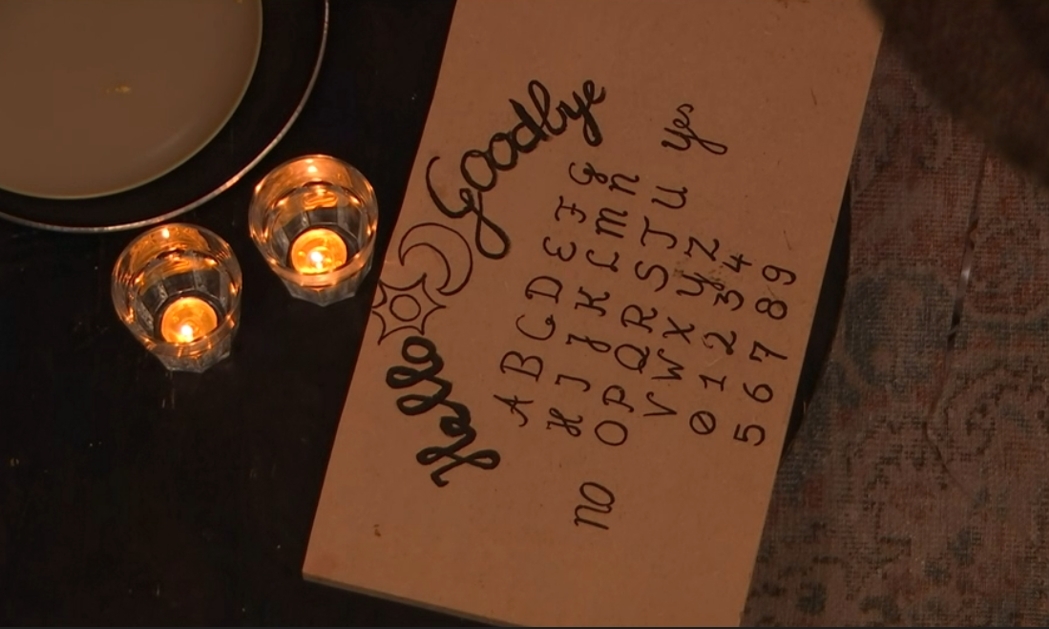 Hello Goodbye
A B C D E F G
H I J K L M N
NO O P Q R S T U yes
V W X Y Z
0 1 2 3 4
5 6 7 8 9